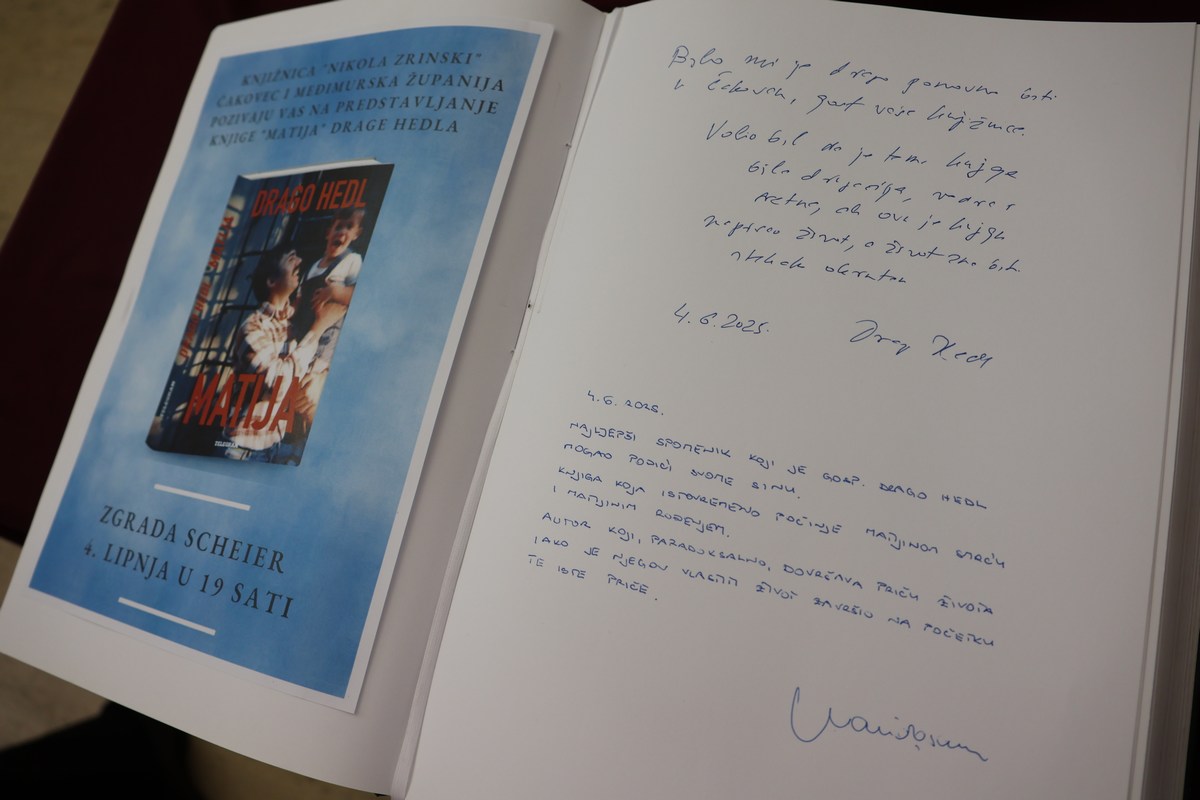 KNJIŽNICA "NIKOLA ZRINSKI"
ČAKOVEC I MEĐIMURSKA ŽUPANIJA
POZIVAJU VAS NA PREDSTAVLJANJE
KNJIGE "MATIJA" DRAGE HEDLA
DRAGO HEDL
MATIJA
TELEGRAM
ZGRADA SCHEIER
4. LIPNJA U 19 SATI
Bilo mi je drago ponovno biti
u Čakovcu, gost vaše knjižnice.
Volio bih da je tema knjige
bila drugačija, vedra i
sretna, ali ovu je knjigu
napisao život, a život zna biti
itekako okrutan
4.6.2025.
Drago Hedl
4.6.2025.
NAJLJEPŠI SPOMENIK KOJI JE GOSP. DRAGO HEDL
MOGAO PODIĆI SVOME SINU.
KNJIGA KOJA ISTOVREMENO POČINJE MATIJINOM SMRĆU
I MATIJINIM ROĐENJEM.
AUTOR KOJI, PARADOKSALNO, DOVRŠAVA PRIČU ŽIVOTA
IAKO JE NJEGOV VLASTITI ŽIVOT ZAVRŠIO NA POČETKU
TE ISTE PRIČE.